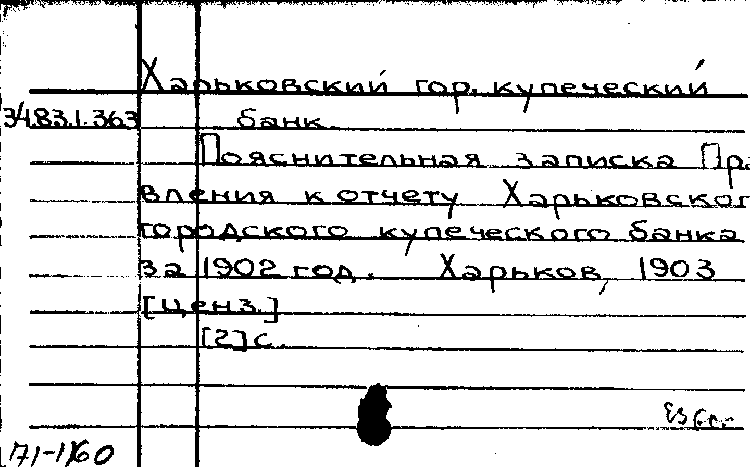 Харьковский гор. купеческий
34.83.1.363 банк
Пояснительная записка Пра
вления к отчету Харьковског
городского купеческого банка
за 1902 год. Харьков, 1903
[ценз.]
[2] с.
71-1/60